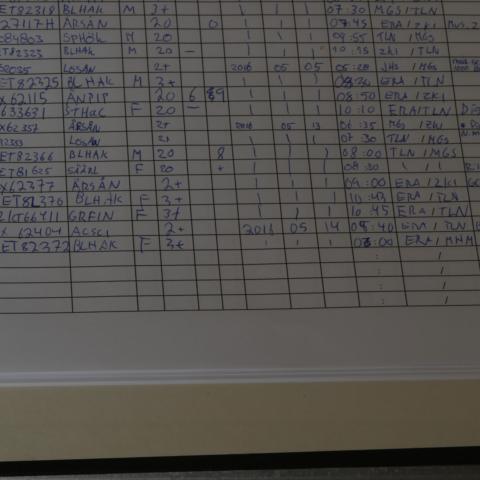 ET82318 BLHAK M 3+ | | | 07:30 MGS/TLN
27117H ÄRSÄN 20 0 | | | 07:45 ERA/ZKI
084803 SPHÖK M 20 | | | 09:55 TLN/MGS
ET82323 BLHAK M 20 - | | | 10:15 ZKI/TLN
LOSAN 2+ 2016 05 05 05:20 JHS/MGS
ET82325 BLHAK M 3+ | | | ERA/TLN
X62115 ANPIP 20 6 | | | 08:50 ERA/ZKI
633631 STHAC F 20 - | | | 10:10 ERA/TLN
X62357 ÄRSÄN 2+ 2016 05 13 06:35 MGS/ZKI
LOSAN 2+ | | | 07:30 TLN/MGS
ET82366 BLHAK M 20 8 | | | 08:00 TLN/MGS
ET81625 F 20 + | | | 08:30 | |
X62377 ÄRSÄN 2+ | | | 09:00 ERA/ZKI
ET82370 BLHAK F 3+ | | | 10:43 ERA/TLN
GRFIN F 3+ | | | 10:45 ERA/TLN
X 62404 ACSCI 2+ 2016 05 14 05:40 ERA/TLN
ET82372 BLHAK F 3+ | | | ERA/MHM
: /
: /
: /